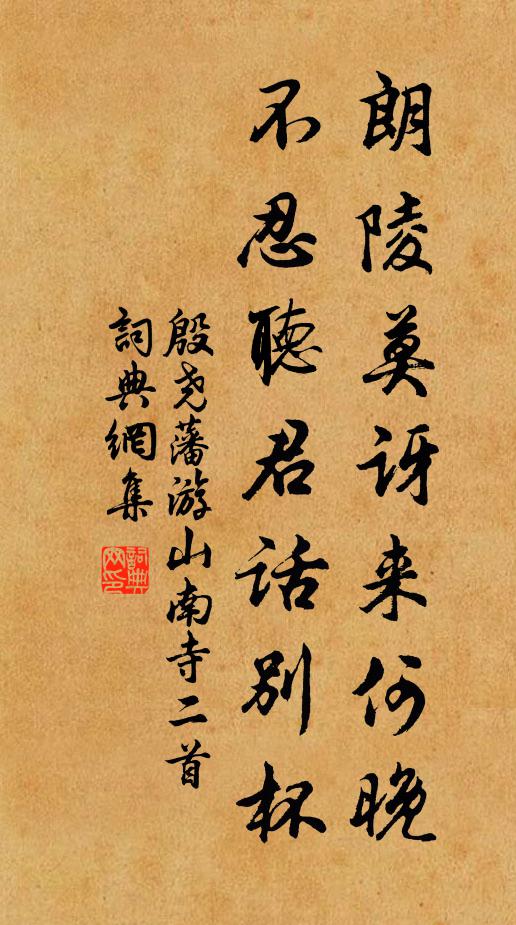 朗陵莫訝来何晚
不忍聽君話別杯
殷尧藩游山南寺二首
詞典網集
詞典網印